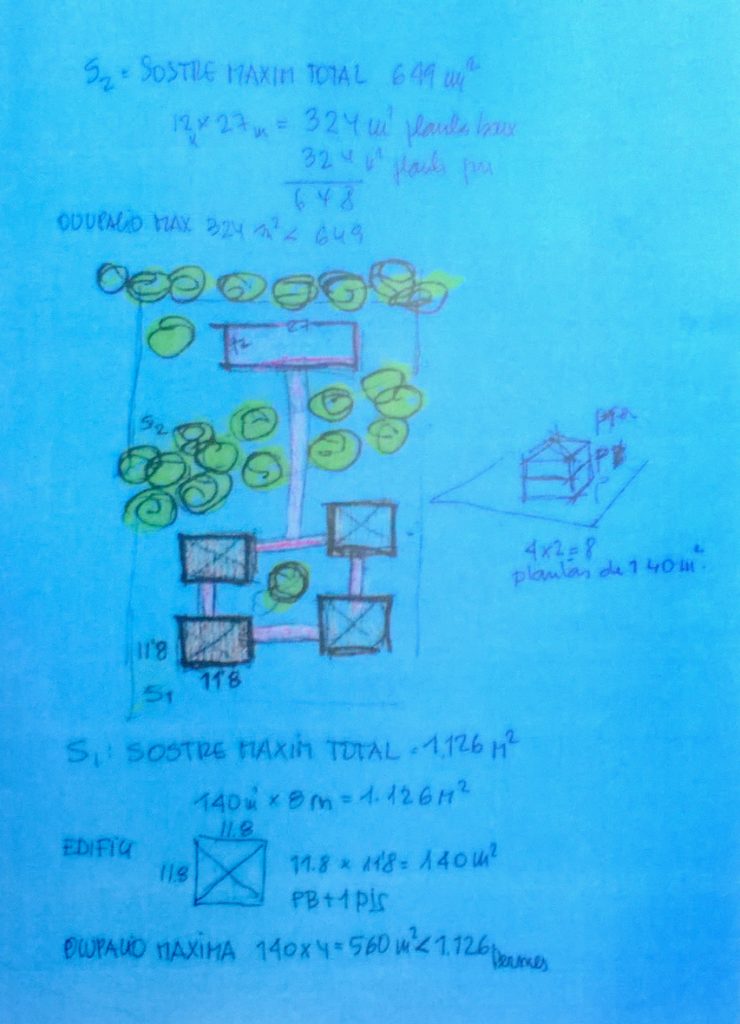 S2 = SOSTRE MAXIM TOTAL 649 m²
12 x 27 m = 324 m² planta baixa
324 m² planta pis
648
OCUPACIO MAX 324 m² < 649
27
12
S2
P
4x2=8
plantas de 140 m²
11'8
11'8
S1
S1: SOSTRE MAXIM TOTAL = 1.126 M²
140 m² x 8 m = 1.126 M²
11.8
EDIFICI
11.8
11.8 x 11'8 = 140 m²
PB+1 PIS
OCUPACIO MAXIMA 140x4=560 m² < 1.126